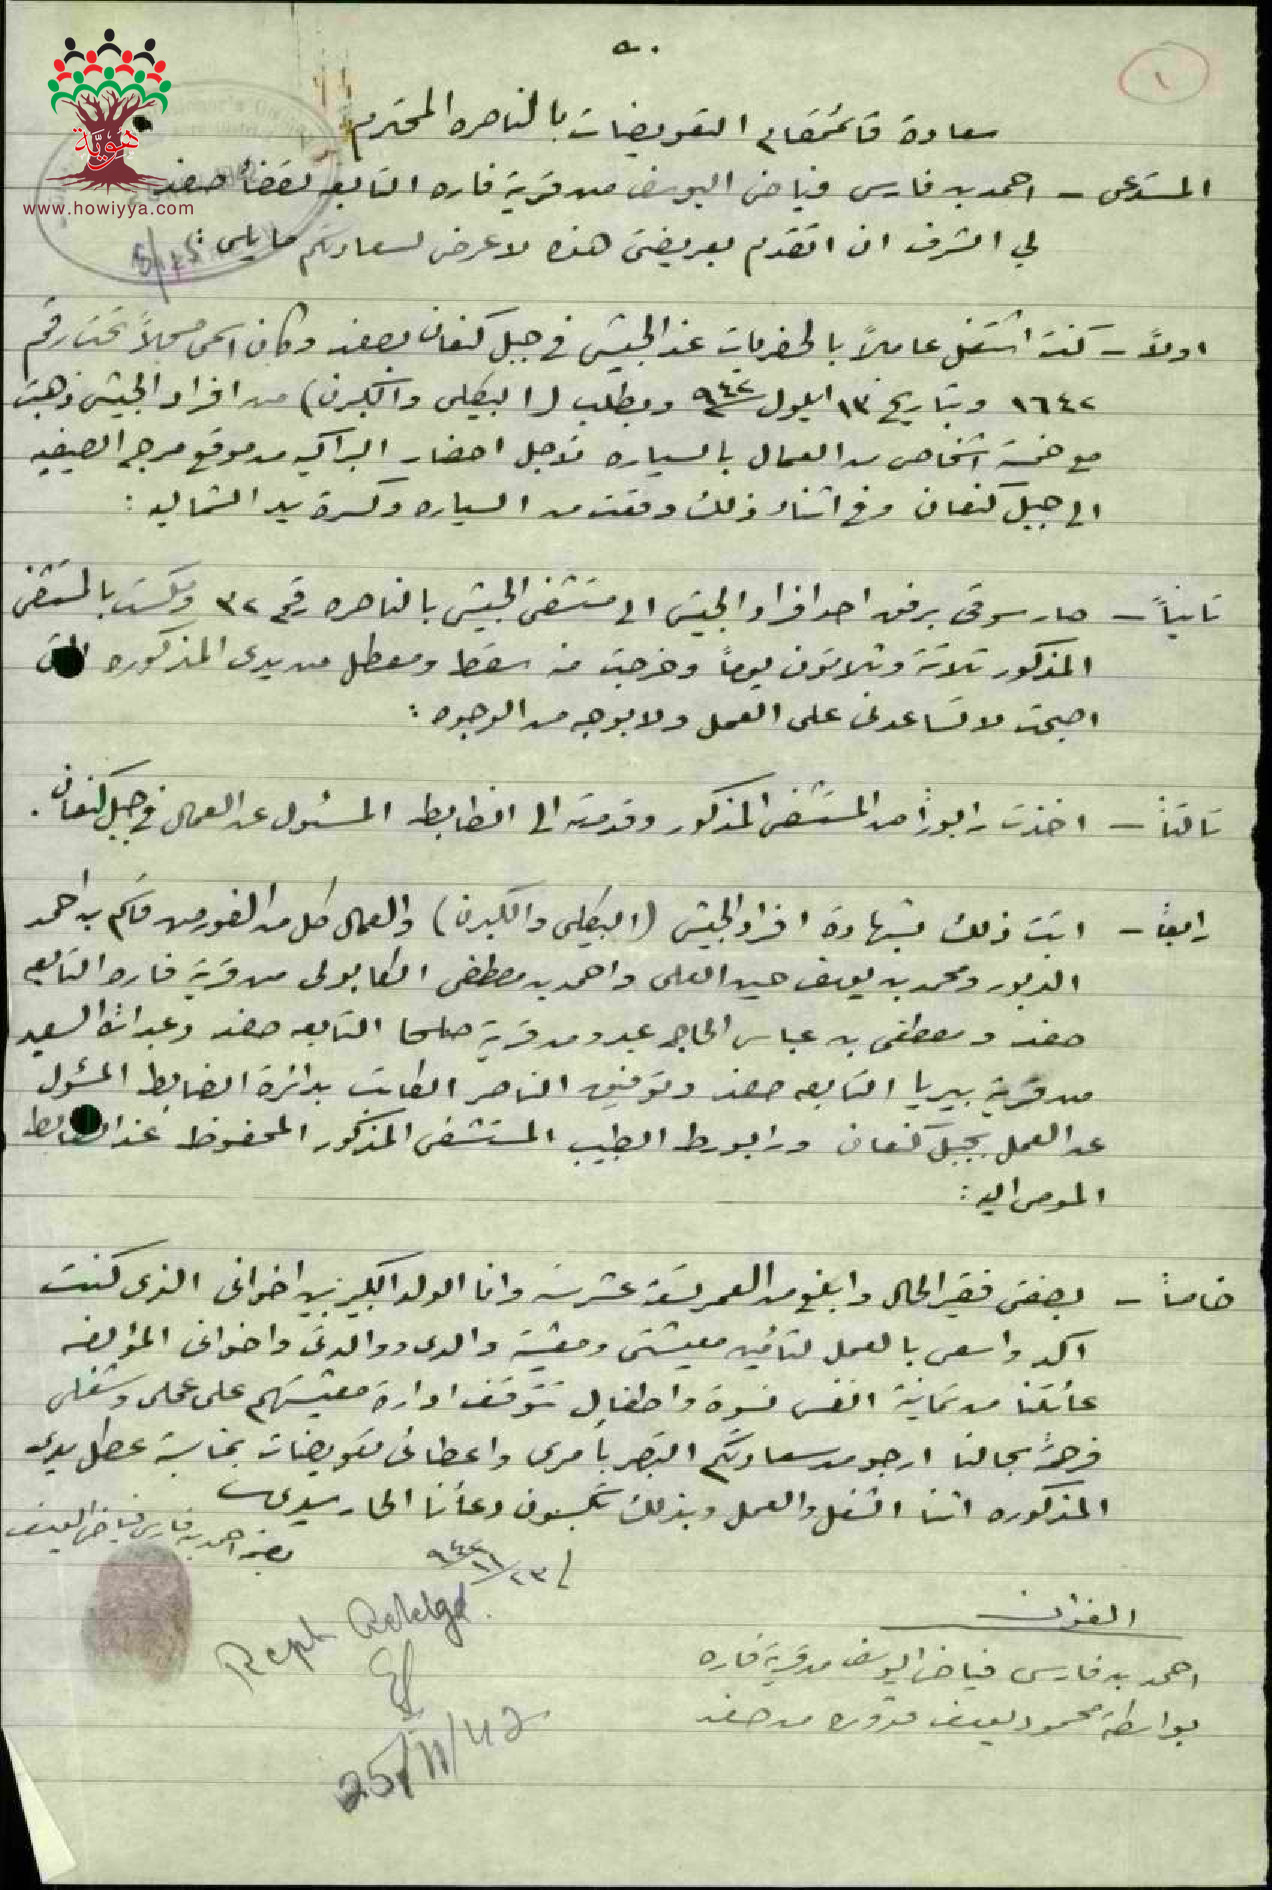 ٥٠
١
سعادة قائمقام التعويضات بالناصره المحترم
المستدعي - احمد بن فارس فياض اليوسف من قرية فاره التابعه لقضأ صفد
لي الشرف ان اتقدم بعريضتي هذه لاعرض لسعادتكم ما يلي :
هوية
www.howiyya.com
اولاً - كنت اشتغل عاملاً بالحفريات عند الجيش في جبل كنعان بصفد وكان اسمي مسجلاً تحت رقم
١٦٤٢ وبتاريخ ١٣ ايلول ٩٤٢ وبطلب (البيكلي والكبرن) من افراد الجيش ذهبت
مع خمسة اشخاص من العمال بالسياره لاجل احضار البراكيه من موقع مرج الصيفيه
الى جبل كنعان وفي اثناء ذلك وقعت من السياره وكسرة يدي الشماليه :
ثانياً - صار سوقي برفق احد افراد الجيش الى مستشفى الجيش بالناصره رقم ٣٢ ومكست بالمستشفى
المذكور ثلاثة وثلاثون يوماً وخرجت منه سقط ومعطل من يدي المذكوره التي
اصبحت لا تساعدني على العمل ولا بوجه من الوجوه :
ثالثاً - اخذت رابوراً من المستشفى المذكور وقدمته الى الظابط المسئول عن العمال في جبل كنعان .
رابعاً - اثبت ذلك بشهادة افراد الجيش (البيكلي والكبرن) والعمال كل من الفورمن قاسم بن احمد
الدبور ومحمد بن يوسف حسين العلي واحمد بن مصطفى الكابولي من قرية فاره التابعه
صفد ومصطفى بن عباس الحاج عبدو من قرية صلحا التابعه صفد وعبدالله السعيد
من قرية بيريا التابعه صفد وتوفيق الناصر الكاتب بدائرة الضابط المسئول
عن العمل بجبل كنعان ورابورط الطبيب المستشفى المذكور المحفوظ عند الضابط
المومى اليه :
خامساً - بصفتي فقير الحال وابلغ من العمر تسعة عشر سنه وانا الولد الكبير بين اخواني الذي كنت
اكد واسعى بالعمل لتأمين معيشتي ومعيشة والدي ووالدتي واخواني المؤلفه
عائلتنا من ثمانية انفس نسوة واطفال تتوقف ادارة معيشتهم على عملي وشغلي
فرحمةً بحالنا ارجو من سعادتكم التبصر بأمري واعطائي تعويضات بمناسبة عطل يدي
المذكوره اثنا الشغل والعمل وبذلك تكسبون دعائنا الحار سيدي
٢٣/١١/٩٤٢
بصمة احمد بن فارس فياض اليوسف
العنوان
احمد بن فارس فياض اليوسف من قرية فاره
بواسطة محمود يوسف قدوره من صفد
25/11/42